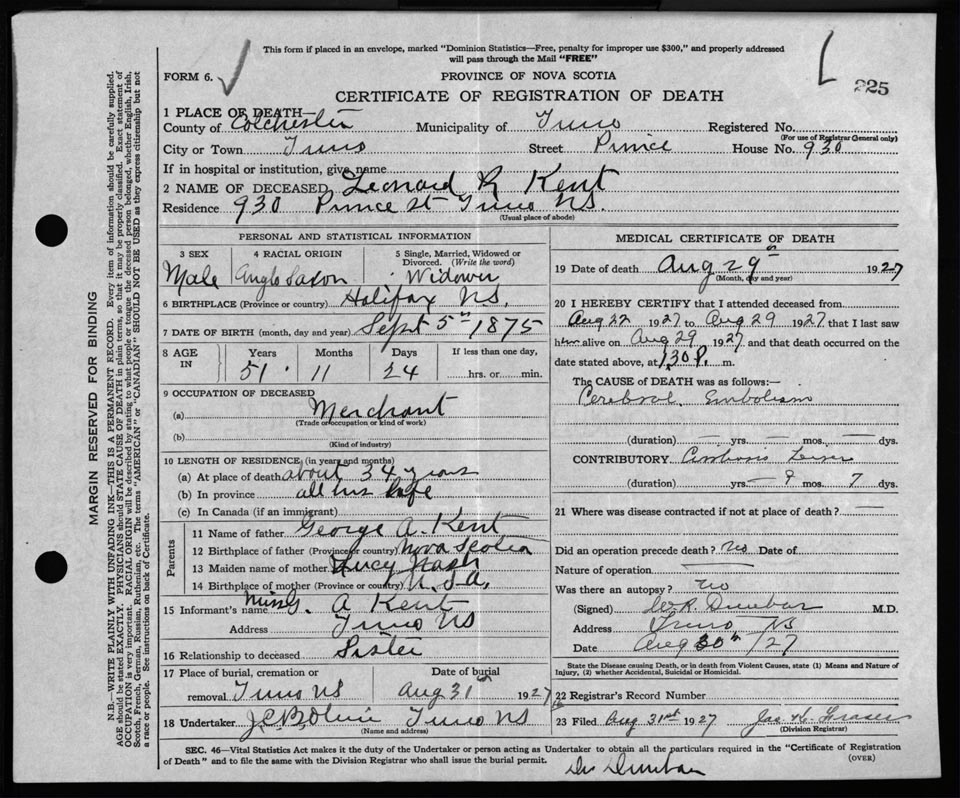 This form if placed in an envelope, marked "Dominion Statistics—Free, penalty for improper use $300," and properly addressed
will pass through the Mail "FREE"
FORM 6.
PROVINCE OF NOVA SCOTIA
225
CERTIFICATE OF REGISTRATION OF DEATH
1 PLACE OF DEATH—
County of Colchester Municipality of Truro Registered No.
(For use of Registrar General only)
City or Town Truro Street Prince House No. 930
If in hospital or institution, give name
2 NAME OF DECEASED Leonard R Kent
Residence 930 Prince St Truro NS.
(Usual place of abode)
PERSONAL AND STATISTICAL INFORMATION
3 SEX 4 RACIAL ORIGIN 5 Single, Married, Widowed or
Divorced. (Write the word)
Male Anglo Saxon Widower
6 BIRTHPLACE (Province or country) Halifax NS.
7 DATE OF BIRTH (month, day and year) Sept 5th 1875
8 AGE IN Years Months Days If less than one day,
51 11 24 hrs. or min.
9 OCCUPATION OF DECEASED
(a) Merchant
(Trade or occupation or kind of work)
(b)
(Kind of industry)
10 LENGTH OF RESIDENCE (in years and months)
(a) At place of death about 34 years
(b) In province all his life
(c) In Canada (if an immigrant)
Parents
11 Name of father George A. Kent
12 Birthplace of father (Province or country) Nova Scotia
13 Maiden name of mother Lucy Nash
14 Birthplace of mother (Province or country) U.S.A.
15 Informant's name A Kent
Address Truro NS
16 Relationship to deceased Sister
17 Place of burial, cremation or Date of burial
removal Truro NS Aug 31 1927
18 Undertaker Truro NS
(Name and address)
MEDICAL CERTIFICATE OF DEATH
19 Date of death Aug 29 1927
(Month, day and year)
20 I HEREBY CERTIFY that I attended deceased from
Aug 22 1927 to Aug 29 1927 that I last saw
him alive on Aug 29 1927 and that death occurred on the
date stated above, at 1.30 P. m.
The CAUSE of DEATH was as follows:—
Cerebral Embolism
(duration) — yrs. — mos. — dys.
CONTRIBUTORY
(duration) yrs. — mos. 7 dys.
21 Where was disease contracted if not at place of death? —
Did an operation precede death? No Date of
Nature of operation
Was there an autopsy? no
(Signed) Dunbar M.D.
Address Truro NS
Date Aug 30th /27
State the Disease causing Death, or in death from Violent Causes, state (1) Means and Nature of
Injury, (2) whether Accidental, Suicidal or Homicidal.
22 Registrar's Record Number
23 Filed Aug 31st 1927 Jas. K. Fraser
(Division Registrar)
SEC. 46—Vital Statistics Act makes it the duty of the Undertaker or person acting as Undertaker to obtain all the particulars required in the "Certificate of Registration
of Death" and to file the same with the Division Registrar who shall issue the burial permit.
(OVER)
Dr Dunbar
MARGIN RESERVED FOR BINDING
N.B.—WRITE PLAINLY WITH UNFADING INK—THIS IS A PERMANENT RECORD. Every item of information should be carefully supplied.
AGE should be stated EXACTLY. PHYSICIANS should STATE CAUSE OF DEATH in plain terms, so that it may be properly classified. Exact statement of
OCCUPATION is very important. RACIAL ORIGIN will be described by stating to what people or tongue the deceased person belonged, whether English, Irish,
Scotch, French, German, Russian, Ruthenian, etc. The terms "AMERICAN" or "CANADIAN" SHOULD NOT BE USED as they express citizenship but not
a race or people. See instructions on back of Certificate.